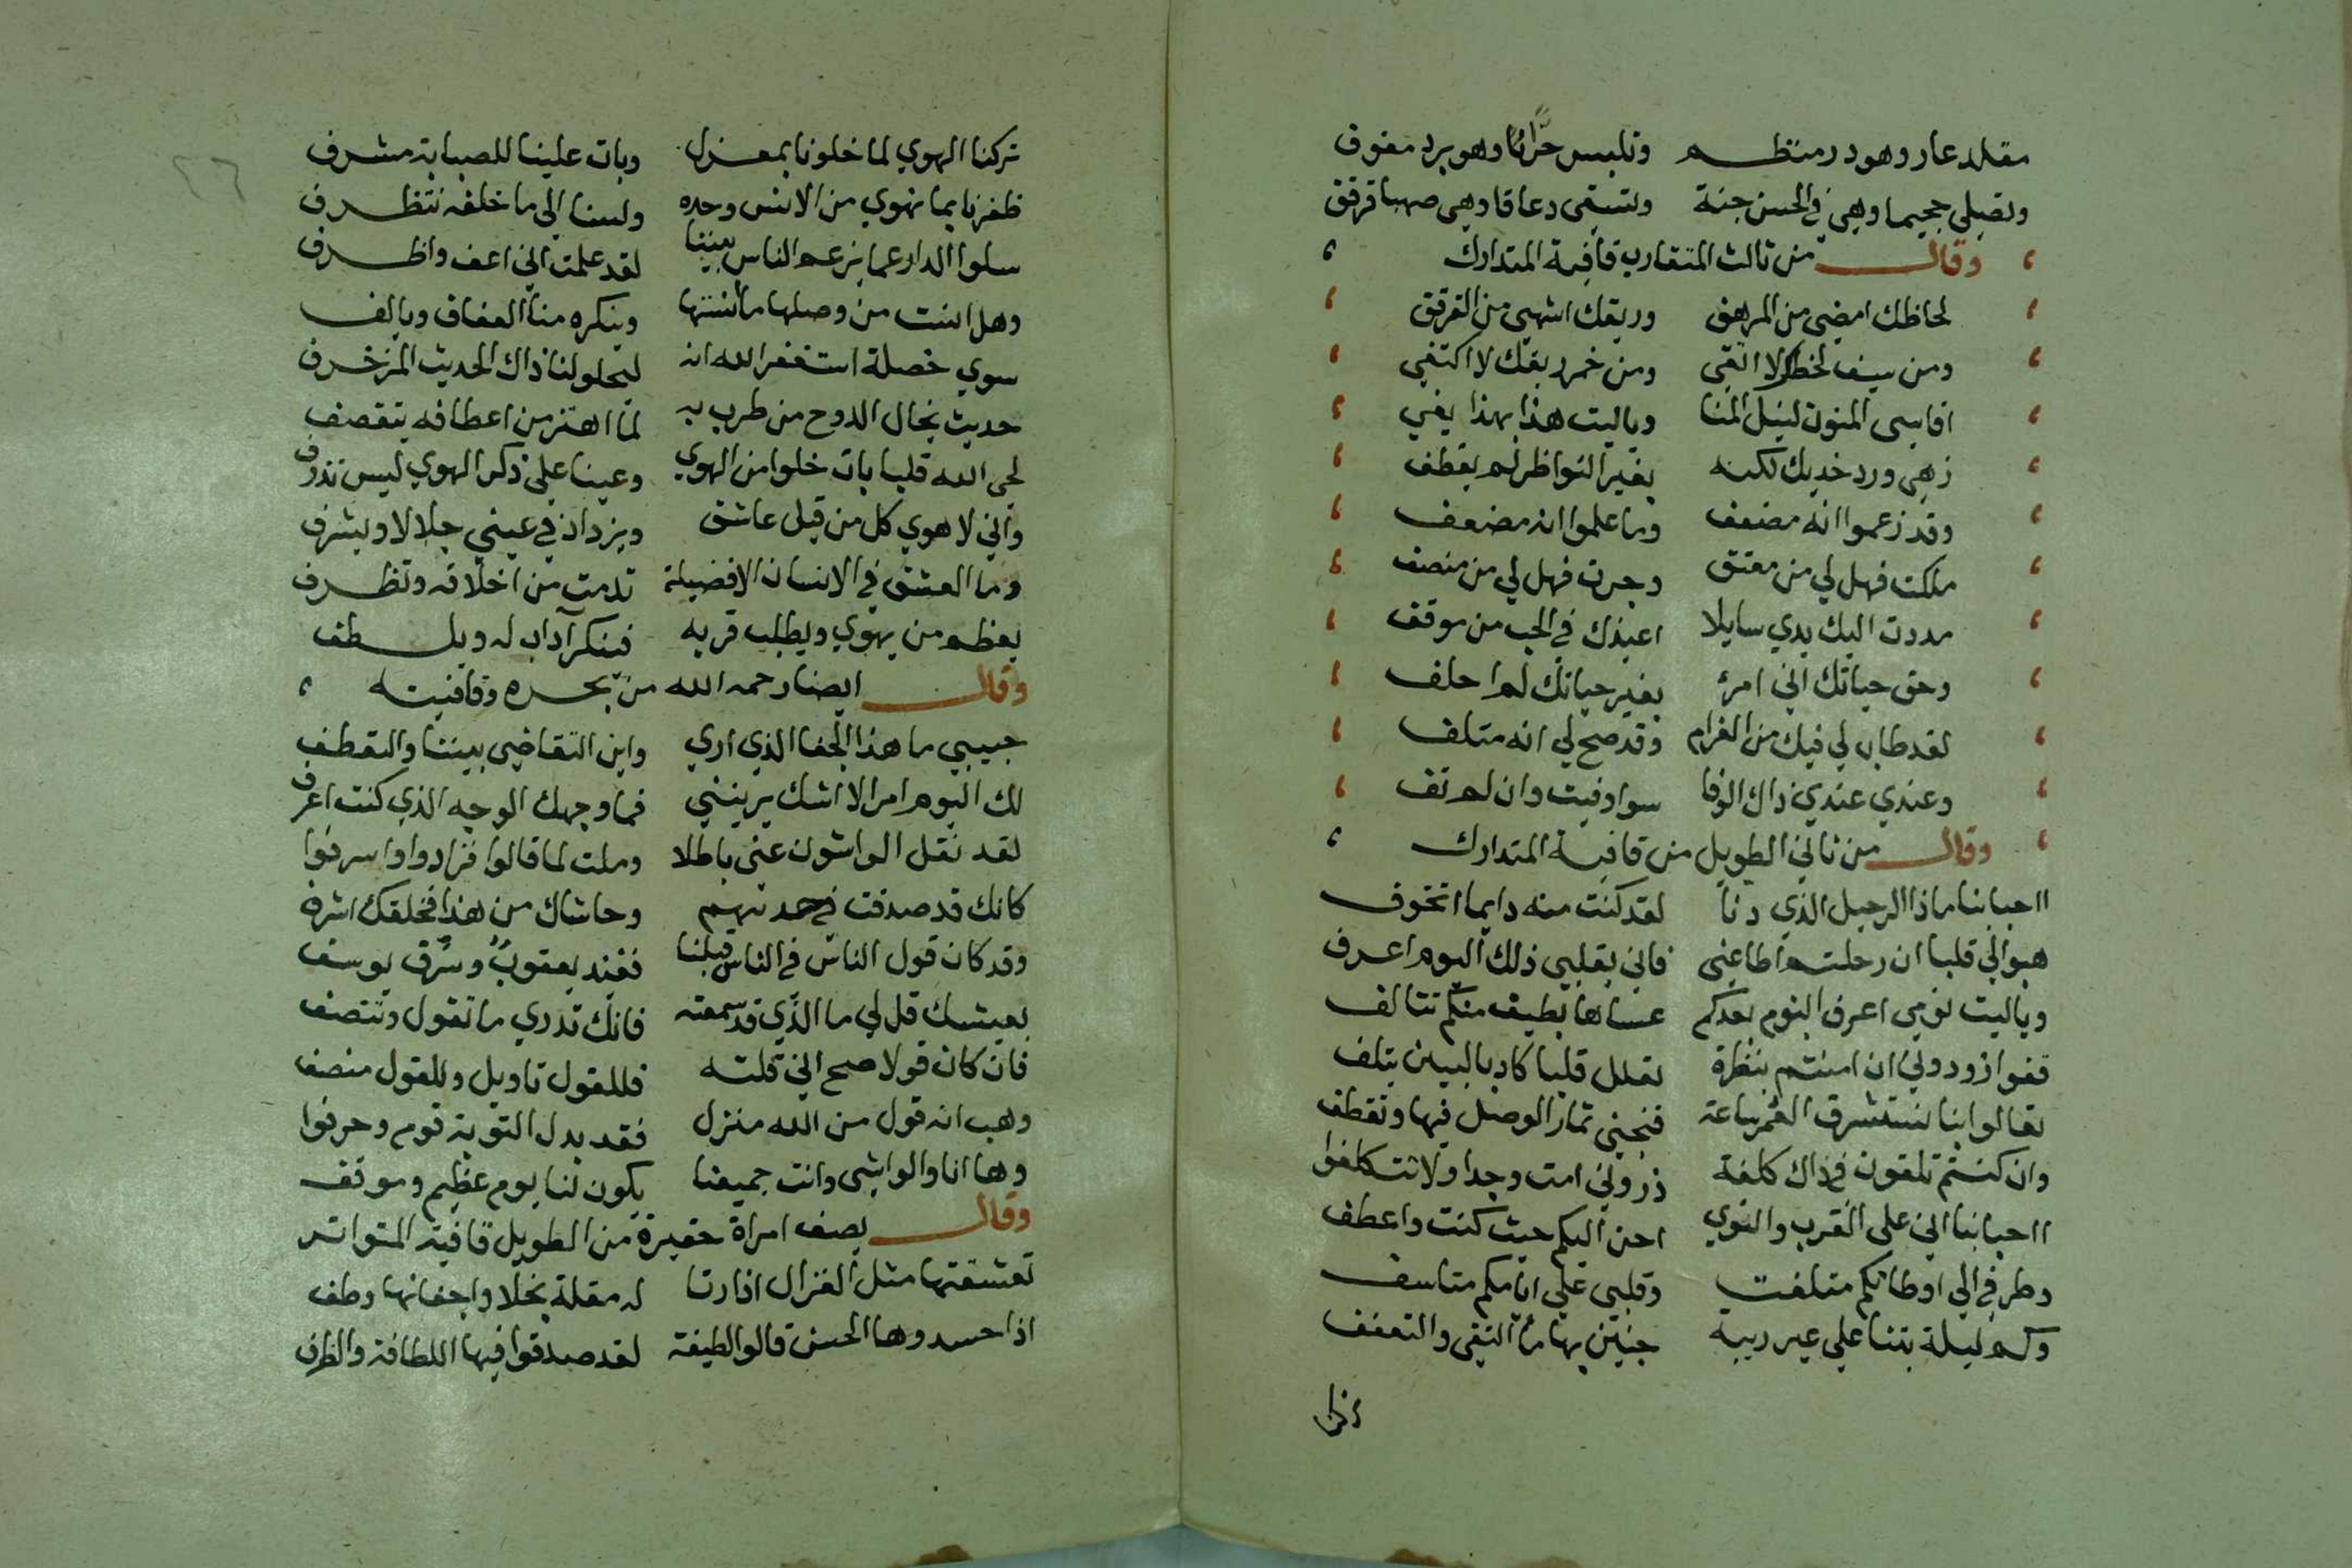 مقلد عار وهو در منتظم وتلبس خزانا وهو برد مفوف
وتصلي جحيما وهي في الحسن جنة وتسقي دعاقا وهي صهبا قرقف
وقال من ثالث المتقارب قافية المتدارك
لحاظك امضي من المرهف وريقك اشهي من القرقف
ومن سيف لحظك لا اتقي ومن خمر ريقك لا اكتفي
اقاسي المنون لنيل المنا وياليت هذا بهذا يفي
زهي ورد خديك لكنه بغير النواظر لم يقطف
وقد زعموا انه مضعف وما علموا انه مضعف
ملكت فهل لي من معتق وجرت فهل لي من منصف
مددت اليك يدي سايلا اعيذك في الحب من موقف
وحق حياتك اني امرؤ بغير حياتك لم احلف
لقد طاب لي فيك من الغرام وقد صح لي انه متلف
وعندي عندي ذاك الوفا سوا وفيت وان لم تف
وقال من ثاني الطويل من قافية المتدارك
ااحبابنا ماذا الرحيل الذي دنا لقد كنت منه دايما اتخوف
هبوا لي قلبا ان رحلتم اطاعني فاني بقلبي ذلك اليوم اعرف
وياليت نومي اعرف النوم بعدكم عساها بطيف منكم تتالف
قفوا زودوني ان امنتم بنظرة تعلل قلبا كاد بالبين يتلف
تعالوا بنا نستشرق العمر ساعة فنجني ثمار الوصل فيها ونقطف
وان كنتم تلقون في ذاك كلفة ذروني امت وجدا ولا تتكلفوا
ااحبابنا اني على القرب والنوي احن اليكم حيث كنت واعطف
وطرفي الي اوطانكم متلفت وقلبي علي ايامكم متاسف
وكم ليلة بتنا علي غير ريبة جنيين بها ما التقي والتعفف
تركنا الهوي لما خلونا بمعزل وبات علينا للصبابة مشرف
ظفرنا بما نهوي من الانس وحده ولسنا الي ما خلفه نتظرف
سلوا الدار عما يزعم الناس بيننا لقد علمت اني اعف واظرف
وهل انست من وصلها ما نسيتها وينكره منا العفاف ويالف
سوي خصلة استغفر الله انه ليحلو لنا ذاك الحديث المزخرف
حديث يخال الدوح من طرب به لما اهتز من اعطافه يتقصف
لحي الله قلبا بات خلوا من الهوي وعينا علي ذكر الهوي ليس تذرف
واني لا هوي كل من قيل عاشق ويزداد في عيني جلالا ويشرف
وما العشق في الانسان الا فضيلة تدمت من اخلاقه وتظرف
يعظم من يهوي ويطلب قربه فتكثر آداب له ويلطف
وقال ايضا رحمه الله من بحره وقافيته
حبيبي ما هذا الجفا الذي اري واين التقاضي بيننا والتعطف
لك اليوم امر لا اشك يريبني فما وجهك الوجه الذي كنت اعرف
لقد نقل الواشون عني باطلا وملت لما قالوا فزادوا واسرفوا
كانك قد صدقت في حديثهم وحاشاك من هذا فخلقك اشرف
وقد كان قول الناس في الناس قبلنا ففند يعقوب وسرق يوسف
بعيشك قل لي ما الذي قد سمعته فانك تدري ما تقول وتنصف
فان كان قولا صح اني قلته فللقول تاويل وللقول منصف
وهب انه قول من الله منزل فقد بدل التوية قوم وحرفوا
وها انا والواشي وانت جميعنا يكون لنا يوم عظيم وموقف
وقال يصف امراة حقيرة من الطويل قافية المتواتر
تعشقتها مثل الغزال اذا رنا له مقلة نجلا واجفانها وطف
اذا حسدوها الحسن قالوا لطيفة لقد صدقوا فيها اللطافة والظرف